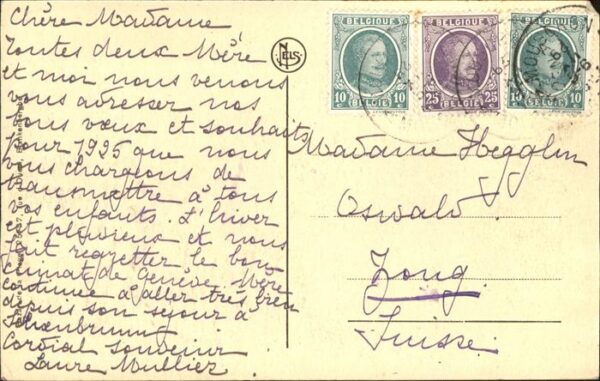 Chère Madame
Toutes deux Mère
et moi nous venons
vous adresser nos
bons vœux et souhaits
pour 1925 que nous
vous chargeons de
transmettre à tous
vos enfants. L'hiver
est pluvieux et nous
fait regretter le bon
climat de Genève. Mère
continue à aller très bien
depuis son séjour à
Schönbrunn
Cordial souvenir
Laure Mullier
NELS
BELGIQUE
10 BELGIË 10
BELGIQUE
25 BELGIË 25
BELGIQUE
10 BELGIË 10
Madame Hegglin
Oswald.
Zoug.
Suisse.